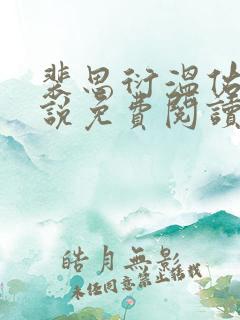 裴思衍溫佑
說免費閱讀
皓月無影
未經同意禁止轉載